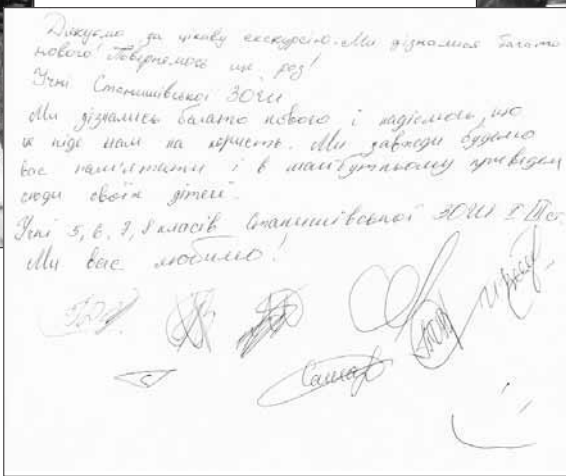 Дякуємо за цікаву екскурсію. Ми дізналися багато
нового! Повернемось ще раз!
Учні Станишівської ЗОШ
Ми дізнались багато нового і надіємось, що
це піде нам на користь. Ми завжди будемо
вас пам'ятати і в майбутньому приведем
сюди своїх дітей.
Учні 5, 6, 7, 8 класів Станишівської ЗОШ I-III ст.
Ми вас любимо!